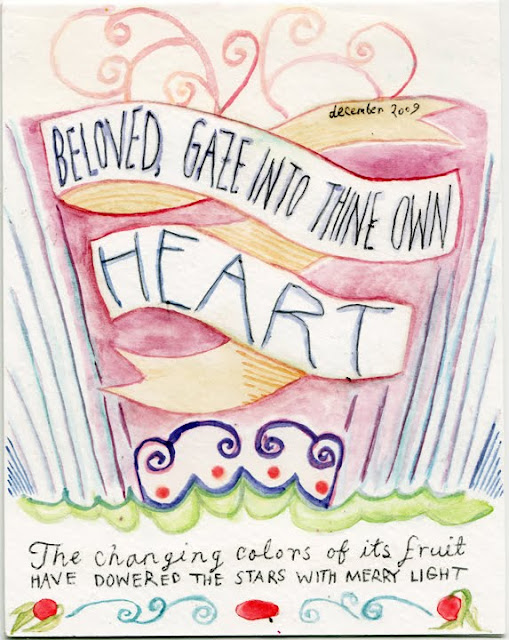 december 2009
BELOVED, GAZE INTO THINE OWN
HEART
The changing colors of its fruit
HAVE DOWERED THE STARS WITH MERRY LIGHT